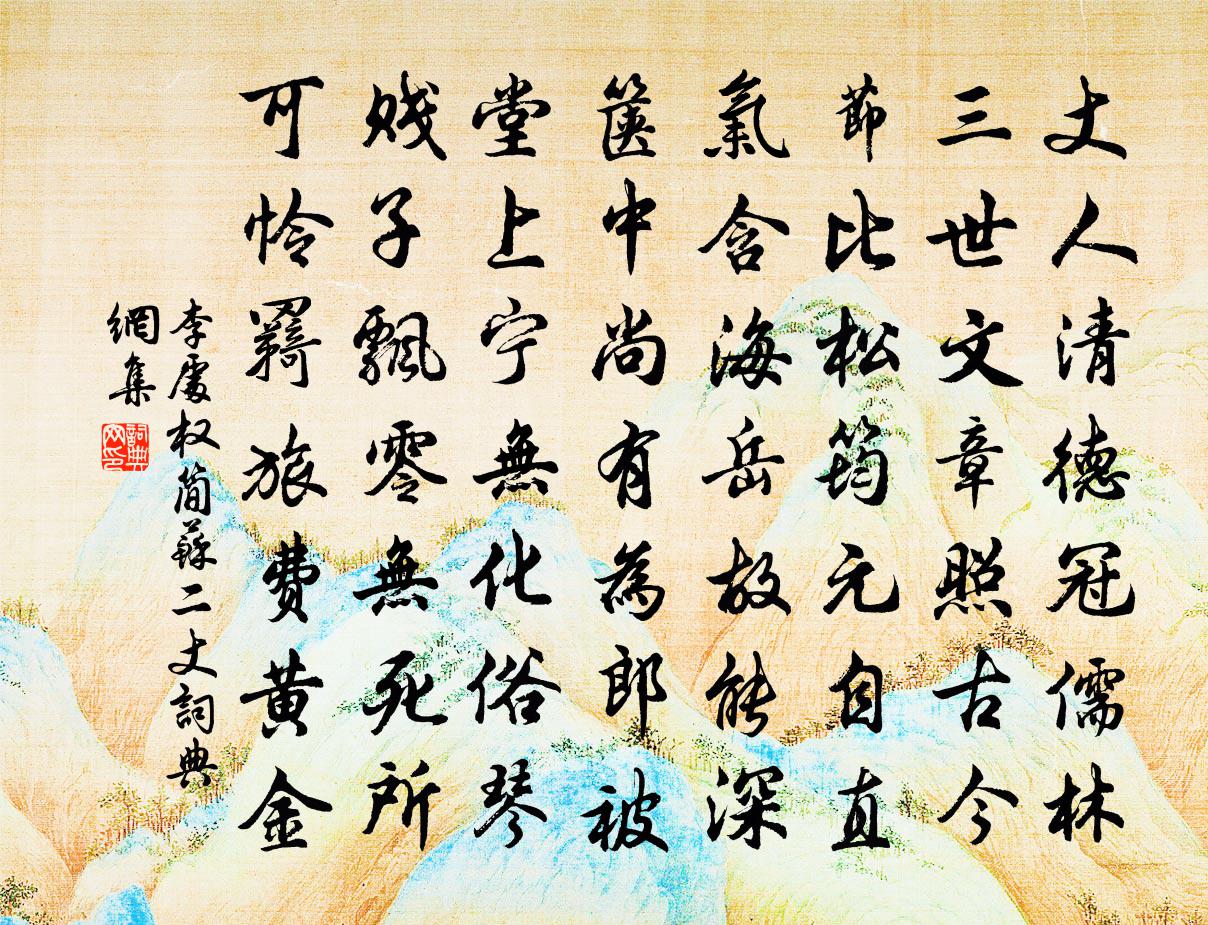 丈人清德冠儒林
三世文章照古今
節比松筠元自直
氣含海岳故能深
篋中尚有為郎被
堂上宁無化俗琴
賤子飄零無死所
可怜羇旅費黃金
李處权简蘇二丈詞典
網集
詞典